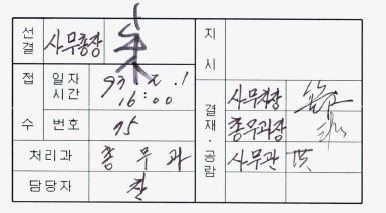 선결 사무총장 지시
접수 일자 시간 93. 2. 1 16:00
결재·공람 사무차장
번호 95 총무과장
처리과 총무과 사무관
담당자